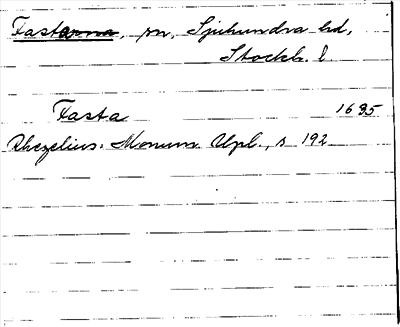 Fastarna, sn, Sjuhundra hd,
Stockh. l
Fasta 1635
Rhezelius: Monum. Upl., s 192